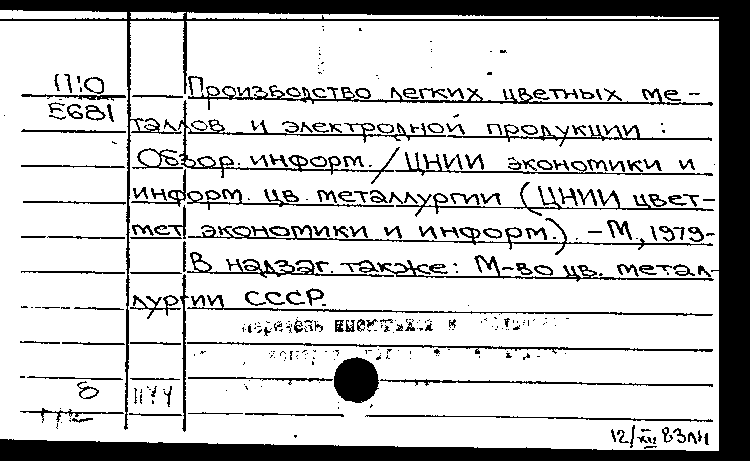 П:0
Е681
Производство легких цветных ме-
таллов и электродной продукции :
Обзор. информ. / ЦНИИ экономики и
информ. цв. металлургии (ЦНИИ цвет-
мет экономики и информ.). – М, 1979-
В надзаг. также: М-во цв. метал-
лургии СССР.
перечень
8
12/XII 83